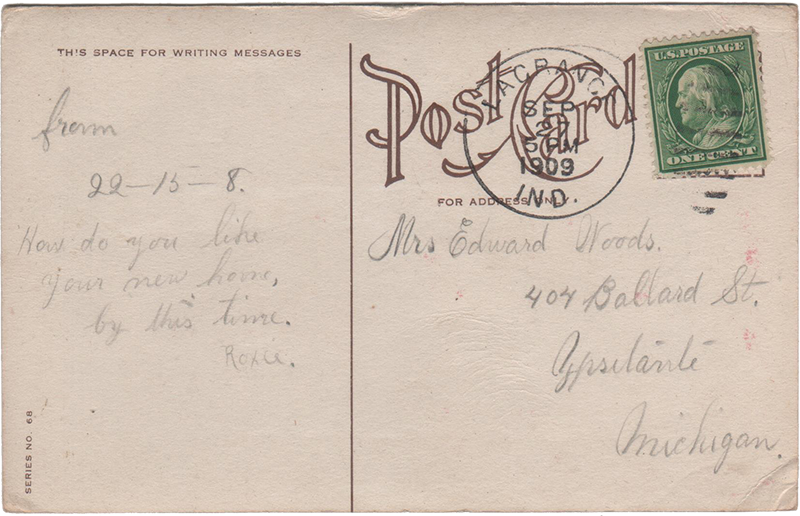 THIS SPACE FOR WRITING MESSAGES
from
22-15-8.
How do you like
your new home,
by this time.
Roxie.
SERIES NO. 68
Post Card
FOR ADDRESS ONLY.
LAGRANGE
SEP
27
5 PM
1909
IND.
U.S. POSTAGE
ONE CENT
Mrs Edward Woods.
404 Ballard St.
Ypsilanti
Michigan.